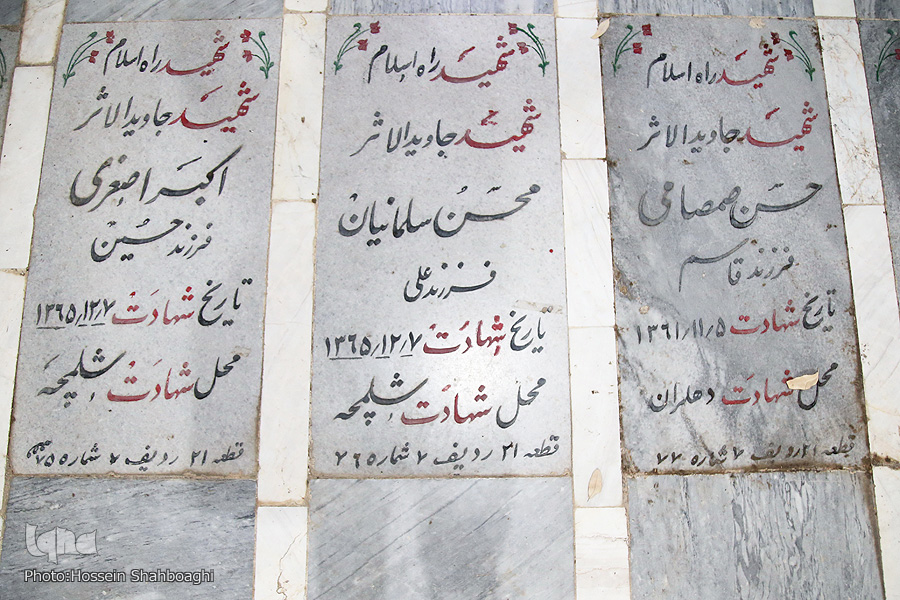 شهید راه اسلام
شهید جاوید الاثر
حسن صمصامی
فرزند قاسم
تاریخ شهادت ۱۳۶۱/۱۱/۵
محل شهادت دهلران
قطعه ۲۱ ردیف ۷ شماره ۷۷
شهید راه اسلام
شهید جاوید الاثر
محسن سلمانیان
فرزند علی
تاریخ شهادت ۱۳۶۵/۱۲/۷
محل شهادت شلمچه
قطعه ۲۱ ردیف ۷ شماره ۷۶
شهید راه اسلام
شهید جاوید الاثر
اکبر اصغری
فرزند حسین
تاریخ شهادت ۱۳۶۵/۱۲/۷
محل شهادت شلمچه
قطعه ۲۱ ردیف ۷ شماره ۷۵
iqna
Photo:Hossein Shahboaghi